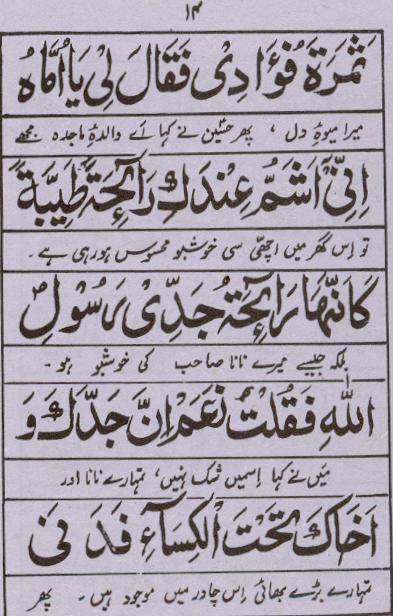 ۱۴
ثَمَرَةَ فُؤَادِیْ فَقَالَ لِیْ یَا اُمَّاهُ
میرا میوۂ دل ، پھر حسین نے کہا اے والدہ ماجدہ مجھے
اِنِّیْ اَشَمُّ عِنْدَكِ رَآئِحَةً طَیِّبَةً
تو اِس گھر میں اچھّی سی خوشبو محسوس ہو رہی ہے۔
كَاَنَّهَا رَآئِحَةُ جَدِّیْ رَسُوْلِ
بلکہ جیسے میرے نانا صاحب کی خوشبو ہو۔
اللهِ فَقُلْتُ نَعَمْ اِنَّ جَدَّكَ وَ
میں نے کہا اسمیں شک نہیں، تمہارے نانا اور
اَخَاكَ تَحْتَ الْكِسَآءِ فَدَنٰی
تمہارے بڑے بھائی اِس چادر میں موجود ہیں۔ پھر